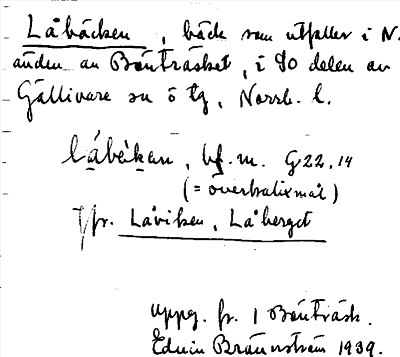 Låbäcken, bäck som utfaller i N.
änden av Bönträsket, i SO delen av
Gällivare sn ö tg, Norrb. l.
låbèkan, bf. m. G22.14
(= överkalixmål)
Jfr. Låviken, Låberget
Uppg. fr. i Bönträsk.
Edvin Brännström 1939.